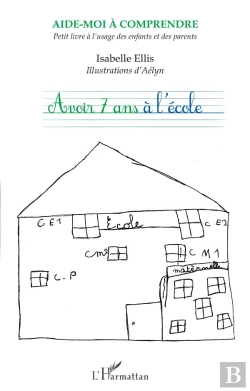 AIDE-MOI À COMPRENDRE
Petit livre à l'usage des enfants et des parents
Isabelle Ellis
Illustrations d'Aélyn
Avoir 7 ans à l'école
École
CE1
CE2
cm²
CM1
C.P
maternelle
L'Harmattan
B